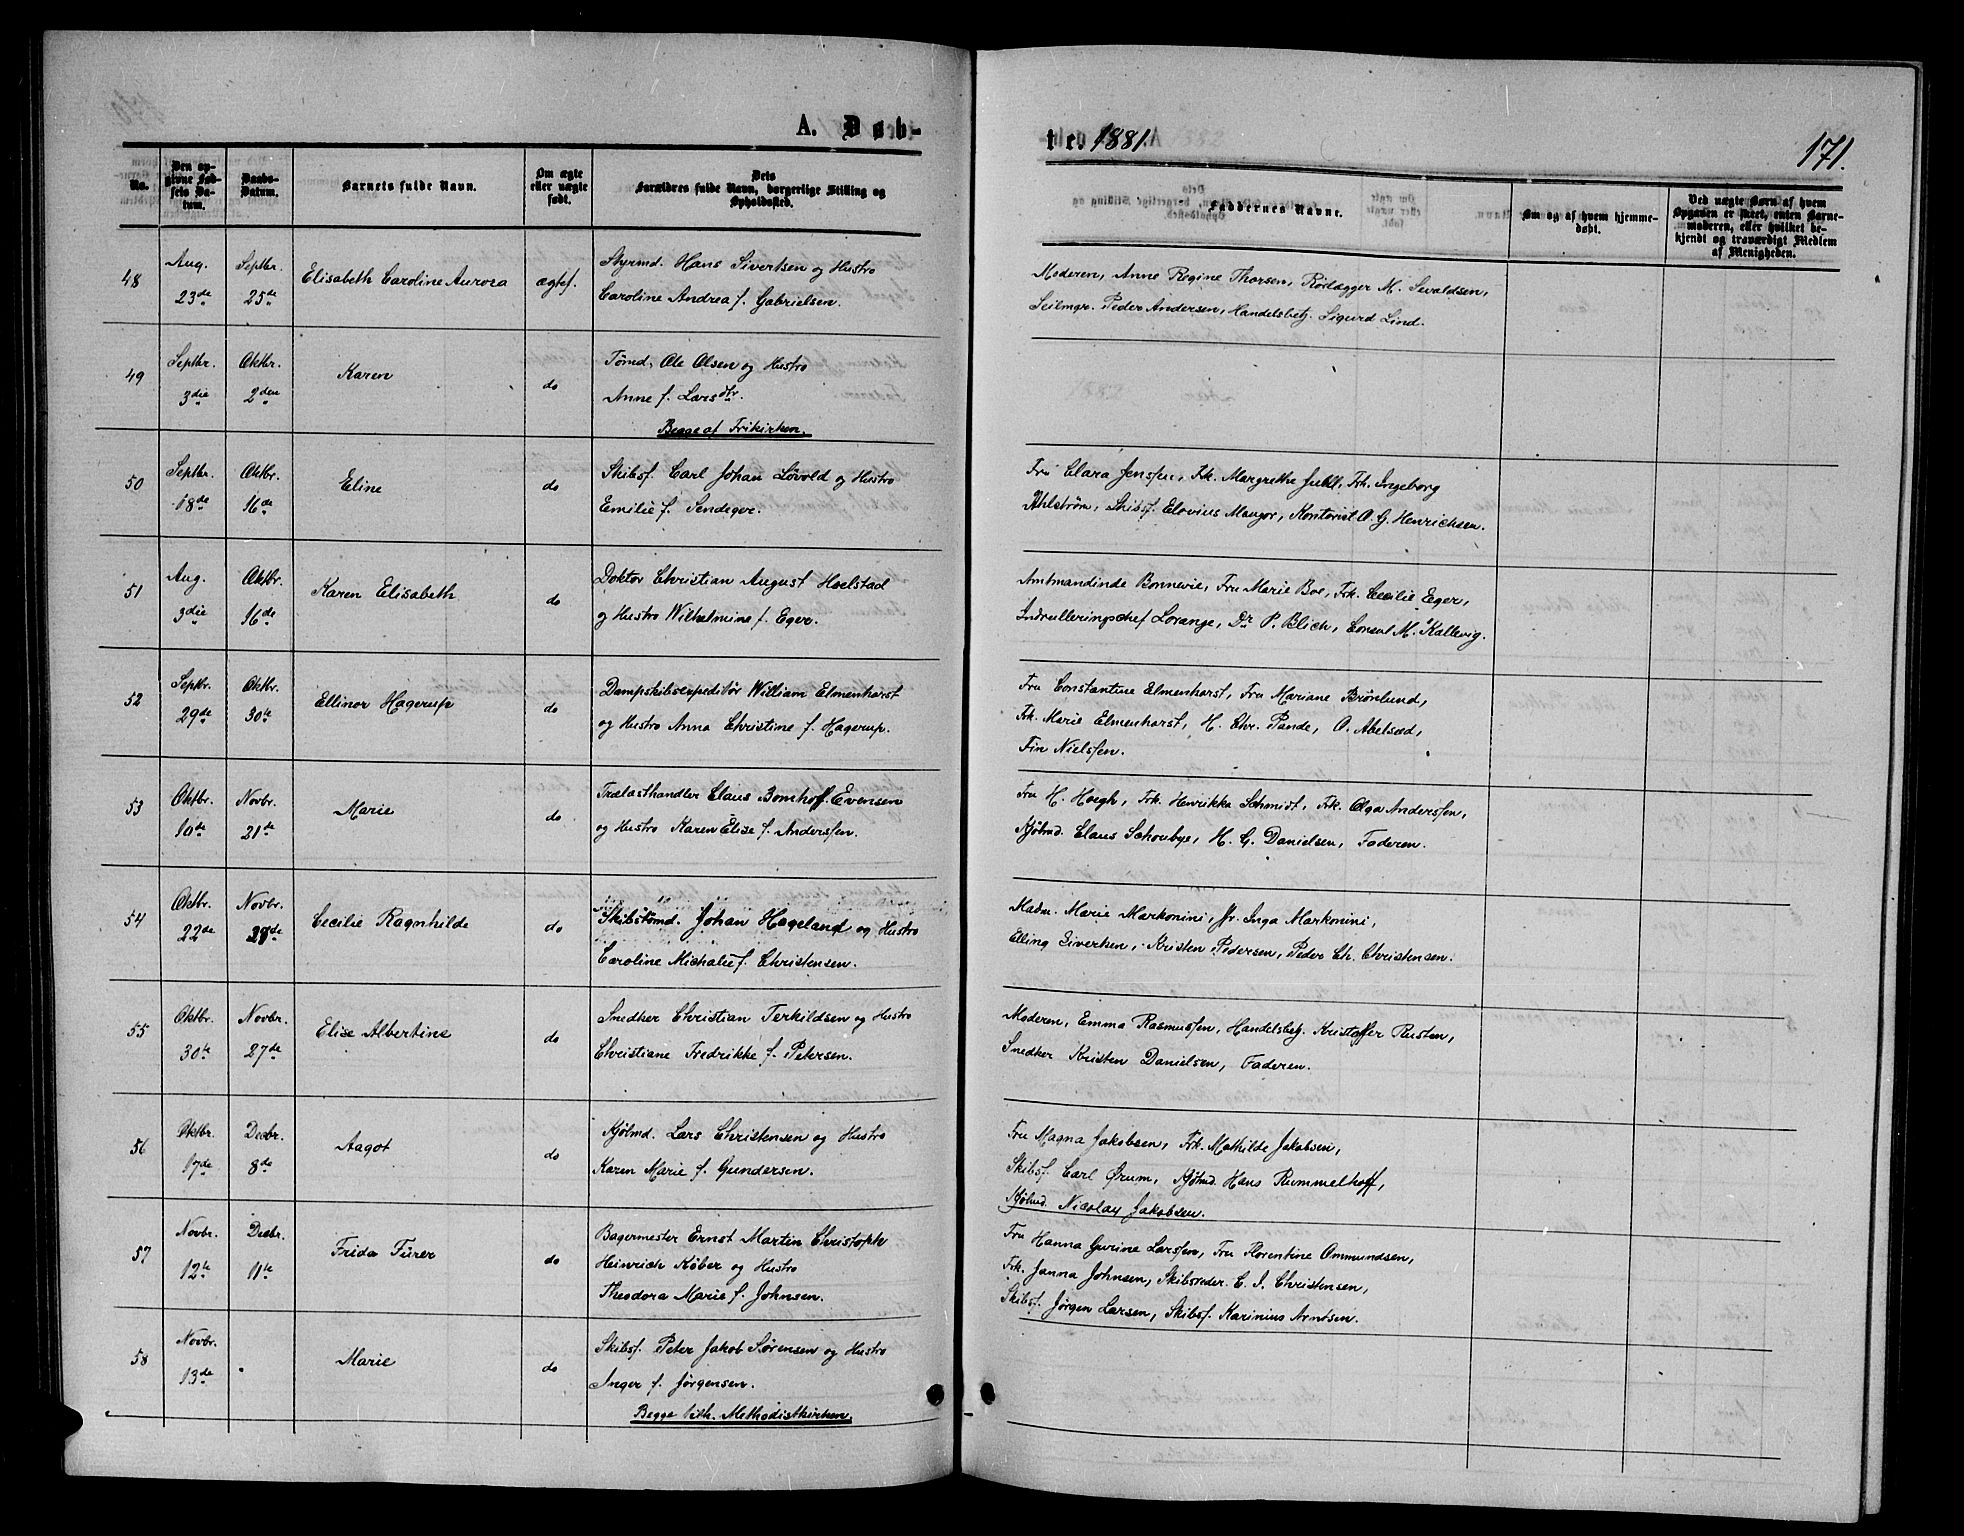 A. Døb-
No.
Den op-
givne Fød-
sels Da-
tum.
Daabs-
Datum.
Barnets fulde Navn.
Om ægte
eller uægte
født.
Dets
Forældres fulde Navn, borgerlige Stilling og
Opholdssted.
48
Aug.
23de
Septbr.
25de
Elisabeth Caroline Aurora
ægtef.
Styrmd. Hans Sivertsen og Hustro
Caroline Andrea f. Gabrielsen.
49
Septbr.
3die
Oktbr.
2den
Karen
do
Tømd. Ole Olsen og Hustro
Anne f. Larsdtr.
Begge af Frikirken.
50
Septbr.
18de
Oktbr.
16de
Eline
do
Skibsf. Carl Johan Løvold og Hustro
Emilie f. Tendeger.
51
Aug.
3die
Oktbr.
16de
Karen Elisabeth
do
Doktor Christian August Hoelstad
og Hustro Wilhelmine f. Eger.
52
Septbr.
29de
Oktbr.
30te
Ellinor Hagerup
do
Dampskibsexpeditør William Elmenhorst
og Hustro Anna Christine f. Hagerup.
53
Oktbr.
10de
Novbr.
21de
Marie
do
Trælasthandler Claus Bomhoff Evensen
og Hustro Karen Elise f. Anderssen.
54
Oktbr.
22de
Novbr.
Cecilie Ragnhilde
do
Skibstømd. Johan Hageland og Hustro
Caroline Michalie f. Christensen.
55
Oktbr.
30te
Novbr.
27de
Elise Albertine
do
Snedker Christian Terkildsen og Hustro
Christiane Fredrikke f. Petersen.
56
Oktbr.
17de
Decbr.
8de
Aagot
do
Kjøbmd. Lars Christensen og Hustro
Karen Marie f. Gundersen.
57
Novbr.
12te
Decbr.
11te
Frida Fürer
do
Bagermester Ernst Martin Christophe
Heinrich Køber og Hustro
Theodora Marie f. Johnsen.
58
Novbr.
13de
Marie
do
Skibsf. Peter Jakob Sørensen og Hustro
Inger f. Jørgensen.
Begge tilh. Methodistkirken.
te. 1881.
171.
Faddernes Navne.
Om og af hvem hjemme-
døbt.
Ved uægte Børn af hvem
Opgaven er skeet, enten Barne-
moderen, eller hvilket be-
kjendt og troværdigt Medlem
af Menigheden.
Moderen, Anne Regine Thorsen, Rørlægger M. Sevaldsen,
Seilmgr. Peder Andersen, Handelsbetj. Sigurd Lind.
Fru Clara Jenssen, Frk. Margrethe Juell, Frk. Ingeborg
Ahlstrøm, Skibsf. Elovius Mangor, Kontorist O. G. Henrichsen.
Amtmandinde Bonnevie, Fru Marie Boe, Frk. Cecilie Eger,
Indrulleringschef Lorange, Dr P. Blich, Consul M. Kallevig.
Fru Constantine Elmenhorst, Fru Mariane Brønlund,
Frk. Marie Elmenhorst, H. Chr. Pande, O. Abelsed,
Fin Nielssen.
Fru H. Høegh, Frk. Henrikka Schmidt, Frk. Olga Anderssen,
Kjøbmd. Claus Schoubye, H. G. Danielsen, Faderen.
Madm. Marie Markonini, Jfr. Inga Markonini,
Elling Sivertsen, Kristen Pedersen, Peder Ch. Christensen.
Moderen, Emma Rasmussen, Handelsbetj. Kristoffer Rusten,
Snedker Kristen Danielsen, Faderen.
Fru Magna Jakobsen, Frk. Mathilde Jakobsen,
Skibsf. Carl Ørum, Kjøbmd. Hans Rummelhoff,
Kjøbmd. Nicolay Jakobsen.
Fru Hanna Gurine Larssen, Fru Florentine Ommundsen,
Frk. Janna Johnsen, Skibsreder C. I. Christensen,
Skibsf. Jørgen Larsen, Skibsf. Karinius Arntsen.